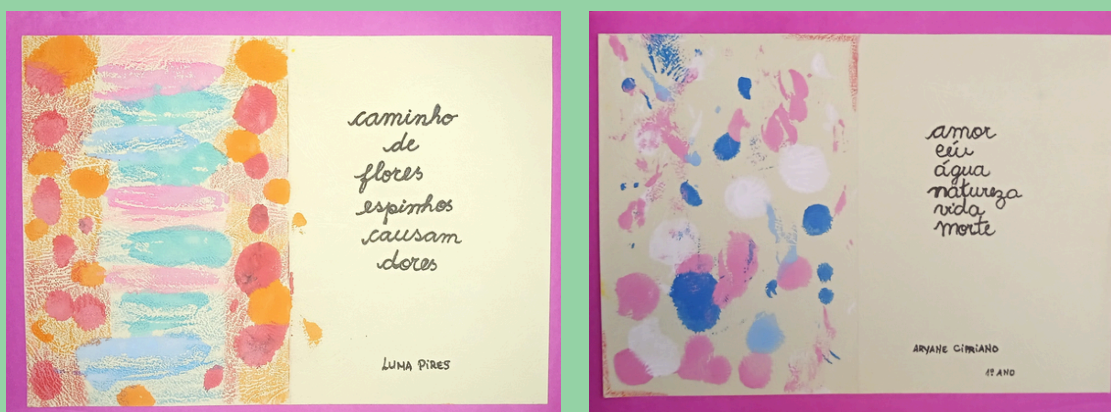 caminho
de
flores
espinhos
causam
dores
LUNA PIRES
amor
céu
água
natureza
vida
morte
ARYANE CIPRIANO
1º ANO